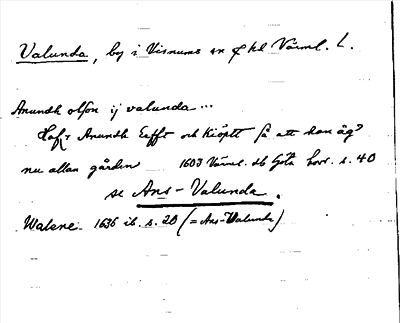 Valunda, by i Visnums sn o hd Värml. L.
Anundh olson ij valunda ...
Hafr Anundh Erfft och Kiöptt så att han äg?
nu allan gården 1603 Värml. db Göta hovr. s. 40
se Ans-Valunda.
Walene 1636 ib. s. 20 (= Ans-Walunda)